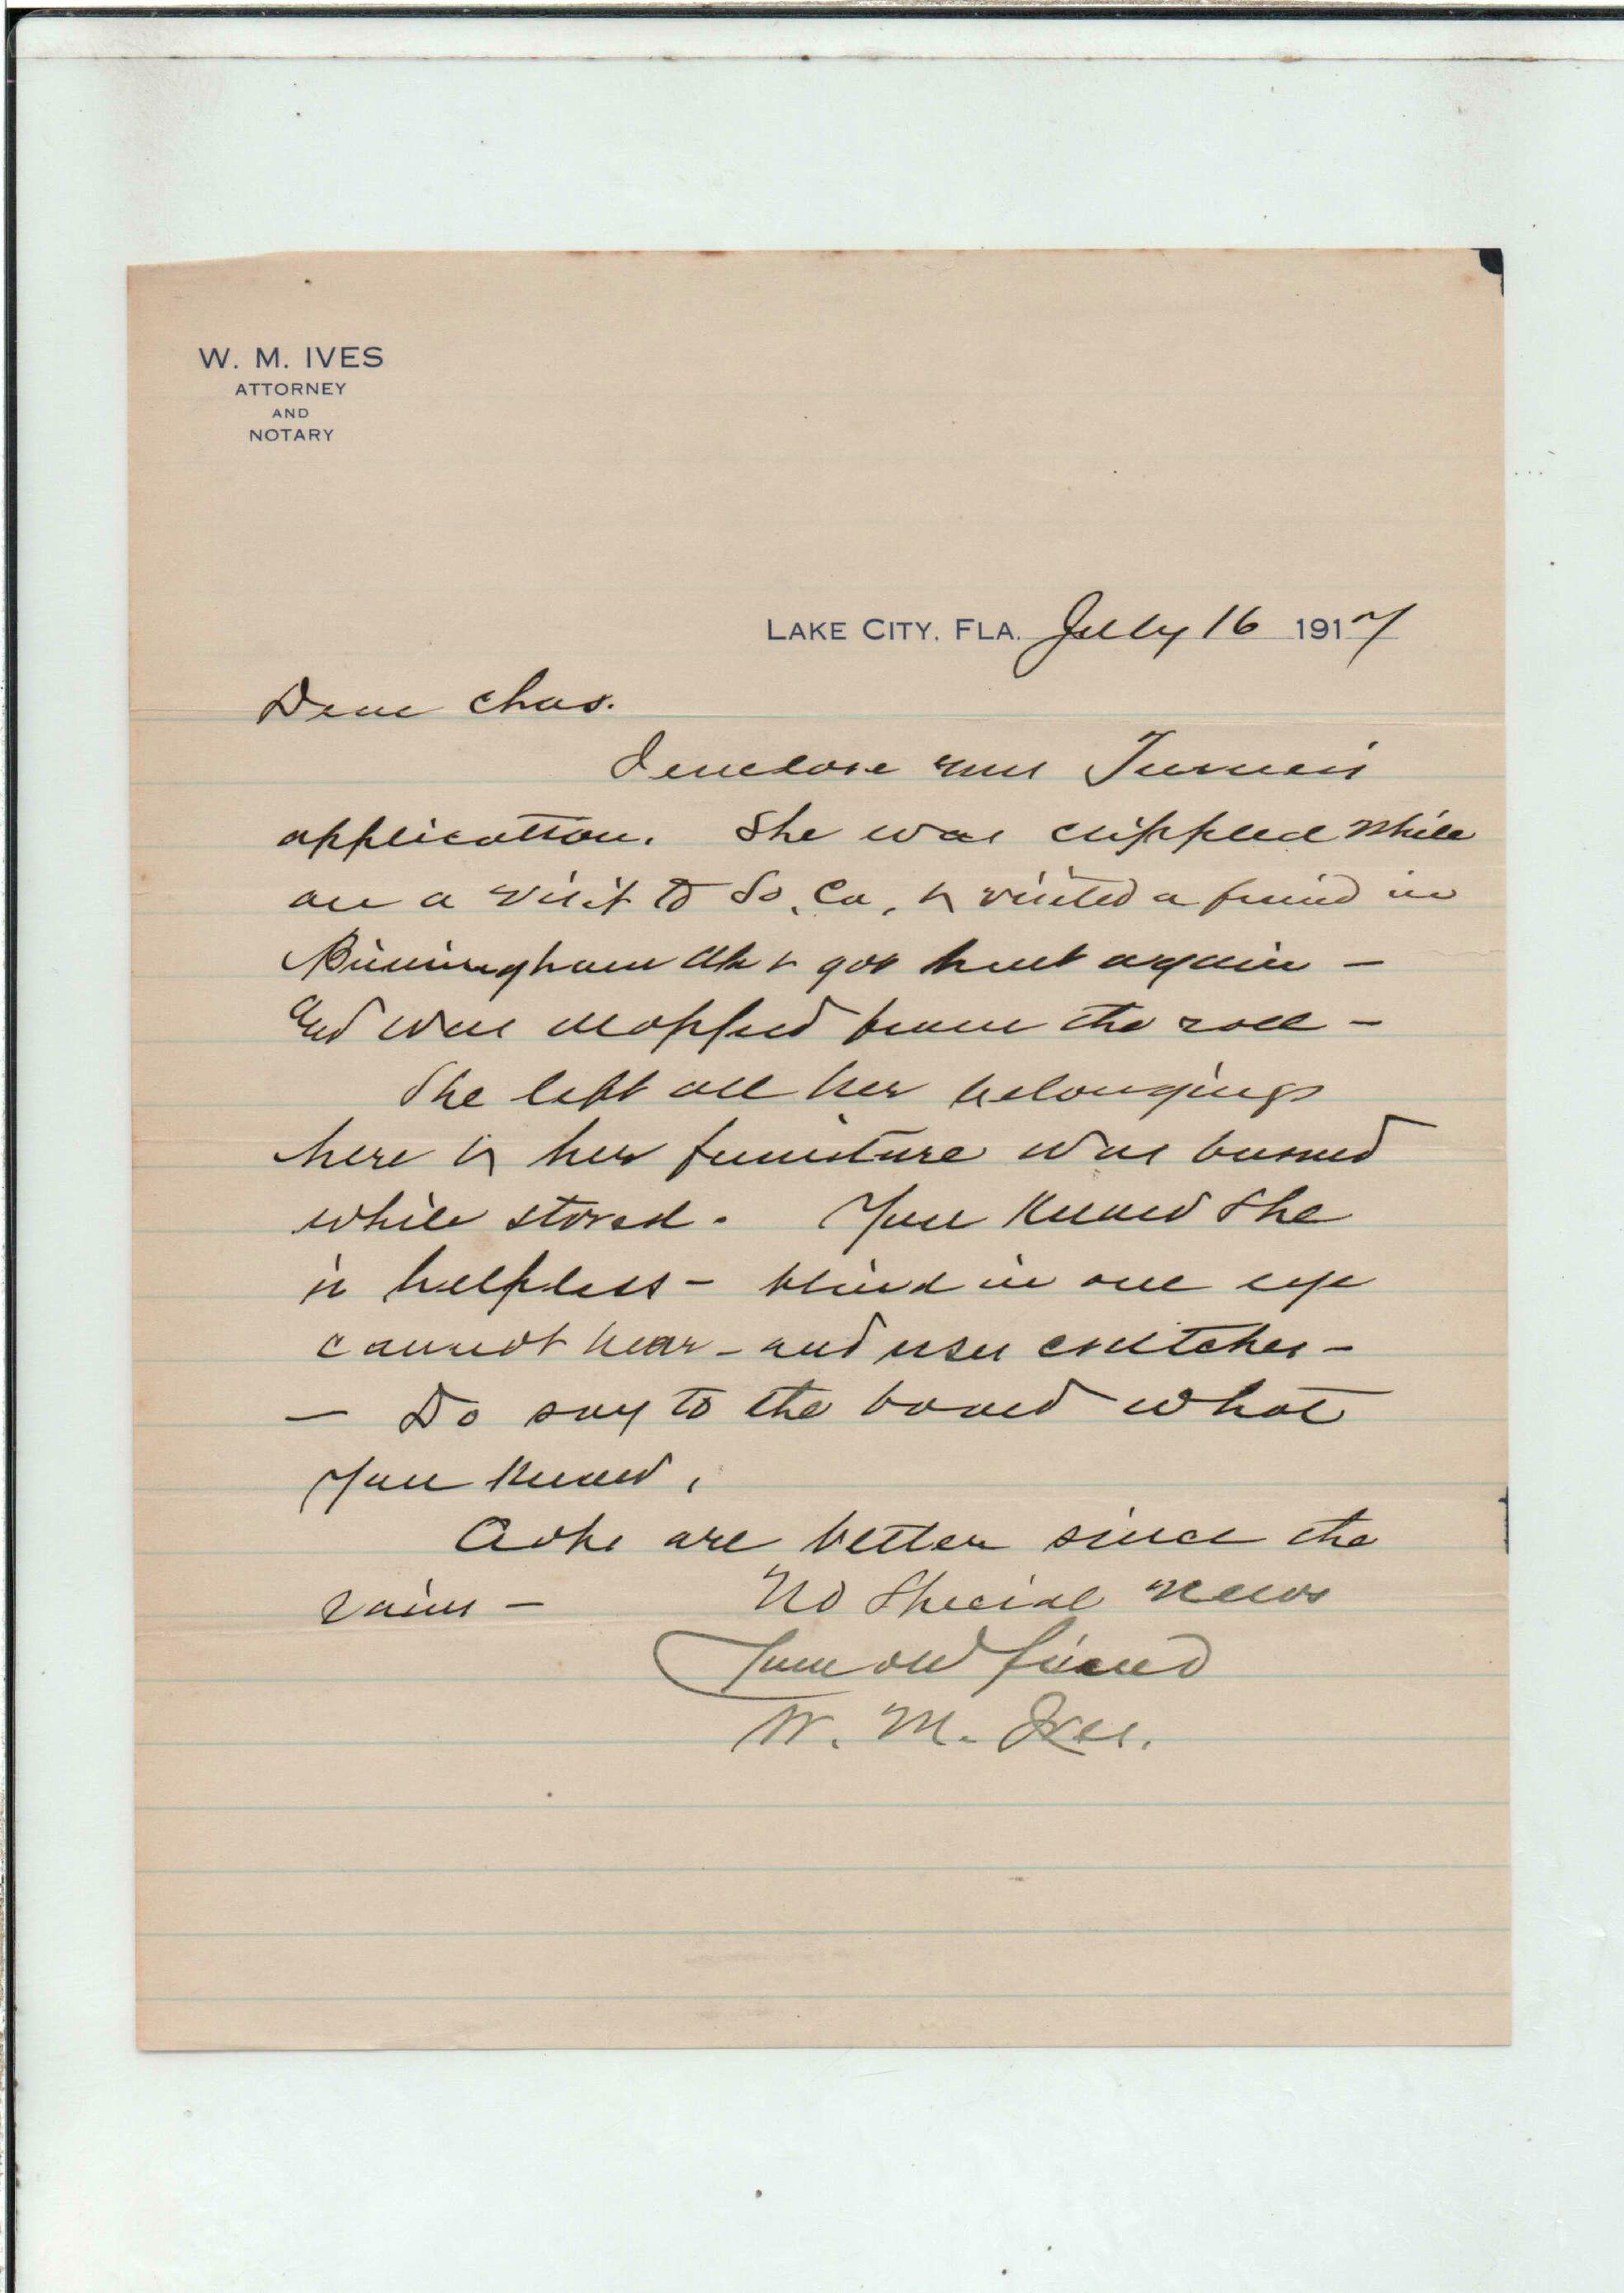 W. M. IVES
ATTORNEY
AND
NOTARY
LAKE CITY, FLA. July 16 1917
Dear Chas.
I enclose Mrs Turners
application. She was crippled while
on a visit to So. Ca. & visited a friend in
Birmingham Ala & got hurt again -
and was dropped from the roll -
She left all her belongings
here & her furniture was burned
while stored. You know she
is helpless - blind in one eye
cannot hear - and uses crutches -
- Do say to the board what
you know.
are better since the
rains - No Special news
Your old friend
W. M. Ives.